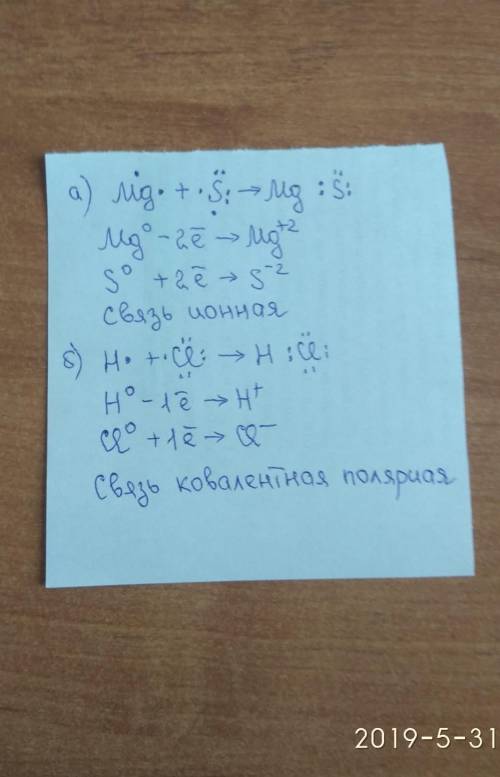 а) Mg· + ·S: → Mg :S:
Mg⁰ - 2ē → Mg⁺²
S⁰ + 2ē → S⁻²
связь ионная
б) H· + ·Cl: → H :Cl:
H⁰ - 1ē → H⁺
Cl⁰ + 1ē → Cl⁻
Связь ковалентная полярная
2019-5-31